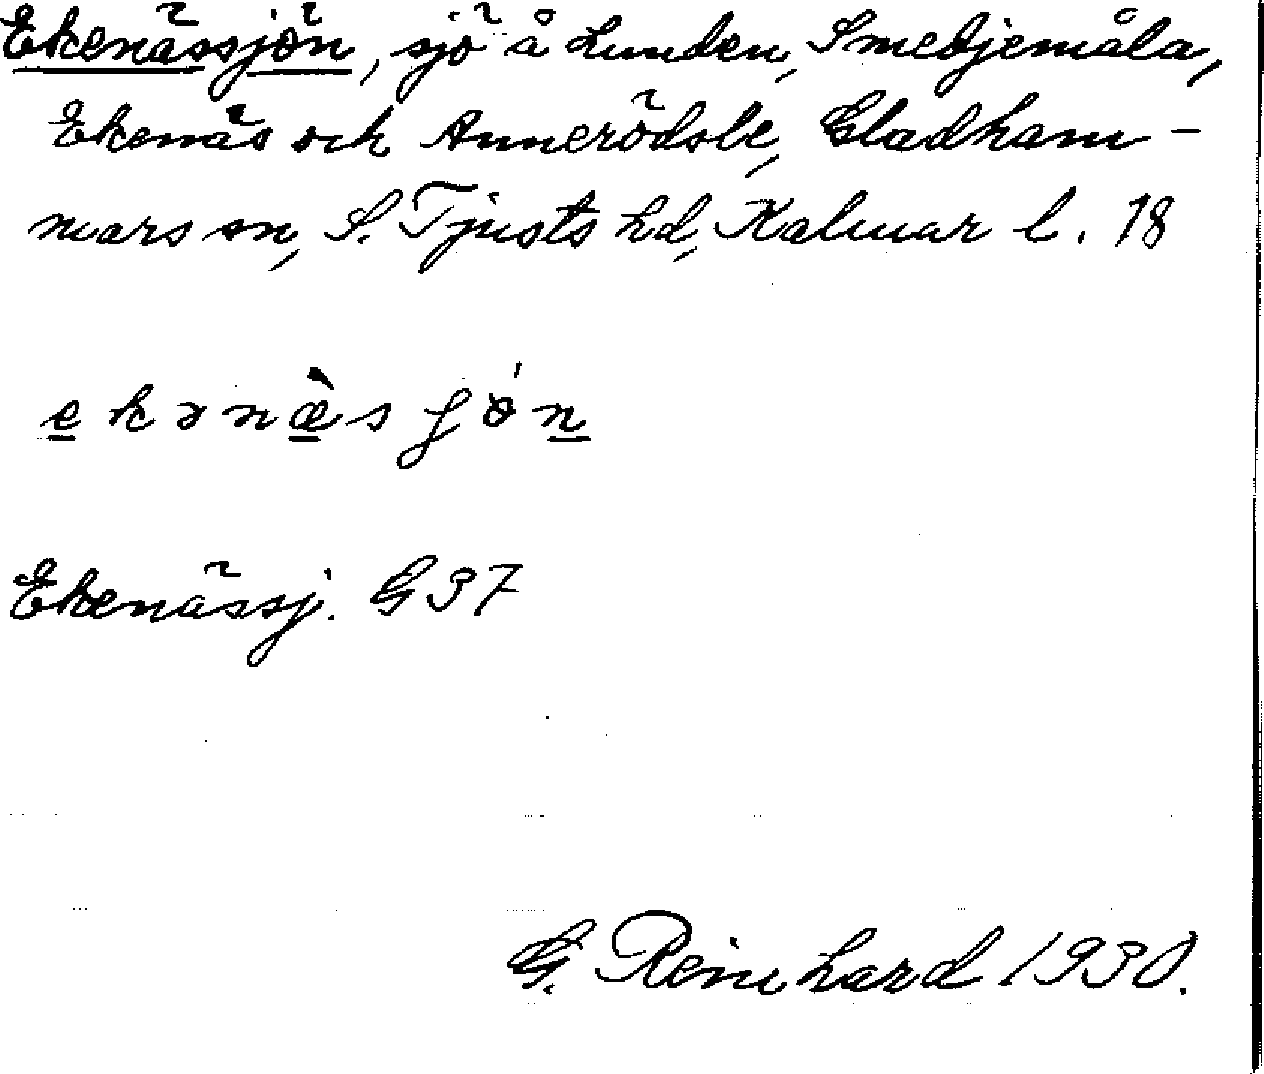 Ekenässjön, sjö å Lunden, Smedjemåla,
Ekenäs och Annerödsle, Gladham-
mars sn, S. Tjusts hd, Kalmar l. 18
ekənæ̀sʃǿn
Ekenässj. G37
G. Reinhard 1930.